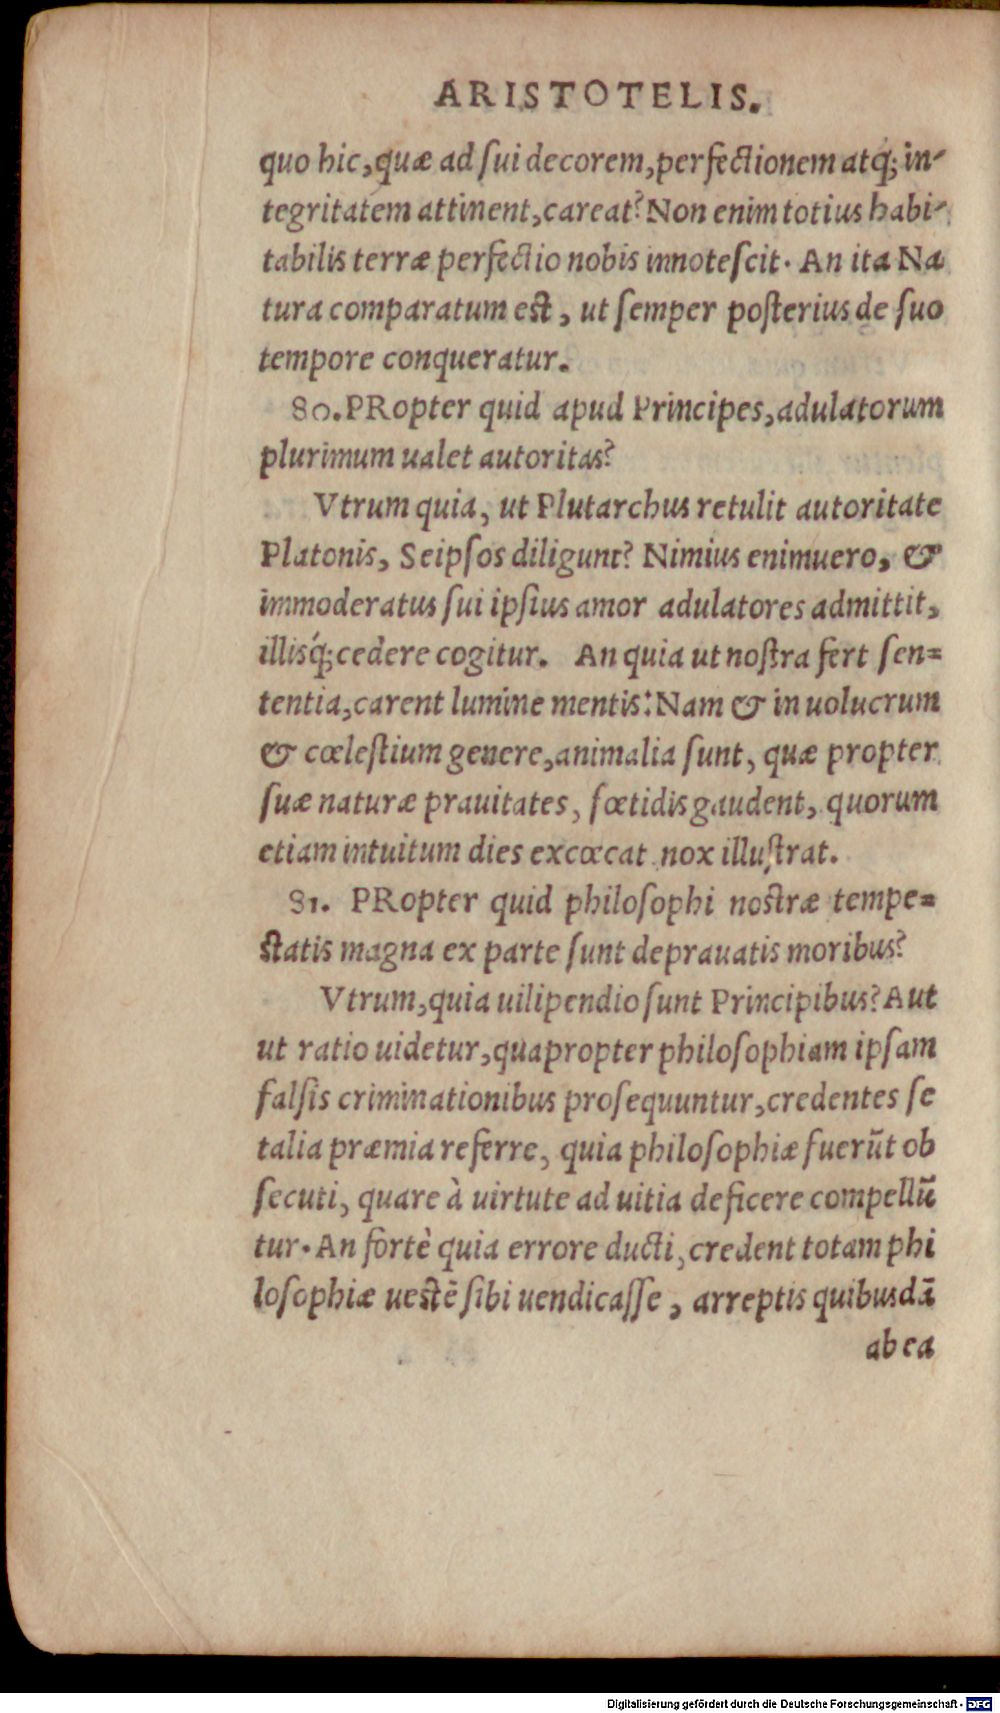 ARISTOTELIS.
quo hic, quæ ad sui decorem, perfectionem atq́; in-
tegritatem attinent, careat? Non enim totius habi-
tabilis terræ perfectio nobis innotescit. An ita Na
tura comparatum est, ut semper posterius de suo
tempore conqueratur.
80. PRopter quid apud Principes, adulatorum
plurimum ualet autoritas?
Vtrum quia, ut Plutarchus retulit autoritate
Platonis, Seipsos diligunt? Nimius enimuero, &
immoderatus sui ipsius amor adulatores admittit,
illisq́; cedere cogitur. An quia ut nostra fert sen=
tentia, carent lumine mentis: Nam & in uolucrum
& cœlestium genere, animalia sunt, quæ propter
suæ naturæ prauitates, fœtidis gaudent, quorum
etiam intuitum dies excœcat nox illustrat.
81. PRopter quid philosophi nostræ tempe=
statis magna ex parte sunt deprauatis moribus?
Vtrum, quia uilipendio sunt Principibus? Aut
ut ratio uidetur, quapropter philosophiam ipsam
falsis criminationibus prosequuntur, credentes se
talia præmia referre, quia philosophiæ fuerūt ob
secuti, quare à uirtute ad uitia deficere compellū
tur. An fortè quia errore ducti, credent totam phi
losophiæ uestē sibi uendicasse, arreptis quibusdā
ab ea
Digitalisierung gefördert durch die Deutsche Forschungsgemeinschaft - DFG